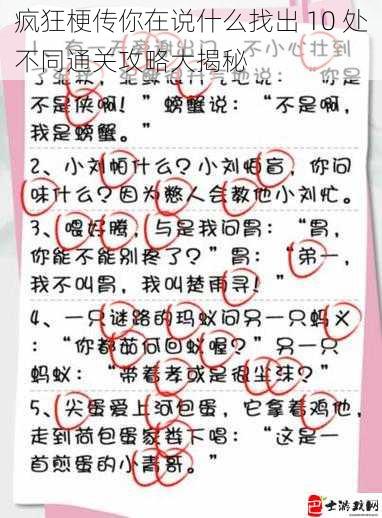 疯狂梗传你在说什么找出 10 处
不同通关攻略大揭秘
不小心壮到
气地说：“你是
不是侠啊！”螃蟹说：“不是啊，
我是螃蟹。”
2、小刘帕什么？小刘怕盲，你问
味什么？因为憨人会教他小刘忙。
3、喂好腾，与是我问胃：“胃，
你能不能别疼了？”胃：“弟一，
我不叫胃，我叫楚雨寻！”
4、一只谜路的玛蚁问另一只蚂义
：“你都茹何回蚁喔？”另一只
蚂蚁：“带着孝或是很尘沫？”
5、尖蛋爱上河包蛋，它拿着鸡他，
走到荷包蛋家娄下唱：“这是一
首煎蛋的小青哥。”
士游戏网